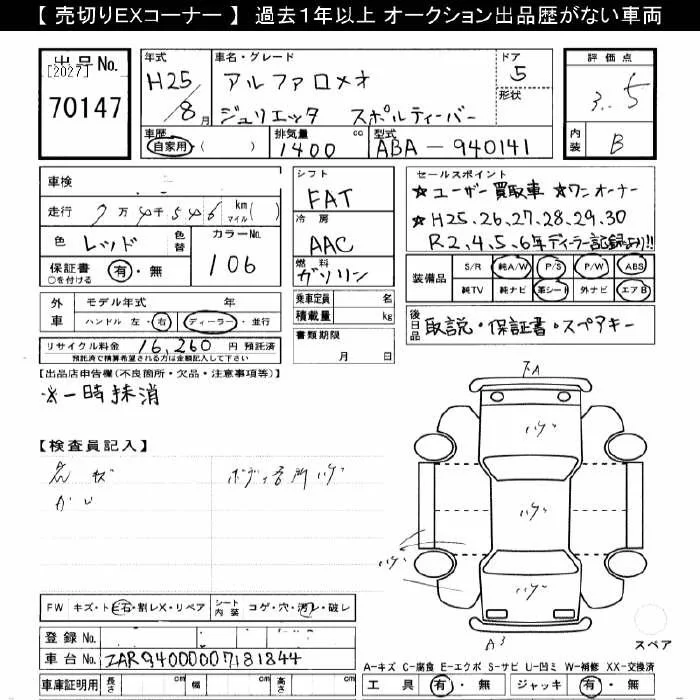 【 売切りEXコーナー 】 過去1年以上 オークション出品歴がない車両
出品No.
[2027]
70147
年式
H25
8月
車名・グレード
アルファロメオ
ジュリエッタ スポルティーバー
ドア
5
形状
評価点
3.5
内装
B
車歴
自家用・( )
排気量
1400 cc
型式
ABA-940141
車検
走行 7万4千546 km マイル( )
色 レッド 色替
カラーNo.
106
保証書 有・無
○を付ける
シフト
FAT
冷房
AAC
燃料
ガソリン
乗車定員 名
積載量 kg
書類期限
月 日
セールスポイント
☆ユーザー買取車 ☆ワンオーナー
☆H25.26.27.28.29.30
R2.4.5.6年ディーラー記録簿より!!
装備品
S/R 純A/W P/S P/W ABS
純TV 純ナビ 革シート 外ナビ エアB
外車
モデル年式 年
ハンドル 左・右 ディーラー・並行
リサイクル料金 16,260 円 預託済
預託済で積算希望される方は金額記入して下さい
後日品
取説・保証書・スペアキー
【出品店申告欄(不良箇所・欠品・注意事項等)】
※一時抹消
【検査員記入】
ボディ各所ハゲ
FA
ハゲ
ハゲ
ハゲ
ハゲ
A3
スペア
FW キズ・ト石・割レX・リペア シート内装 コゲ・穴・汚レ・破レ
登録No.
車台No. ZAR94000007181844
車庫証明用 長さ cm 幅 cm 高さ cm
A-キズ C-腐食 E-エクボ S-サビ U-凹ミ W-補修 XX-交換済
工具 有・無 ジャッキ 有・無